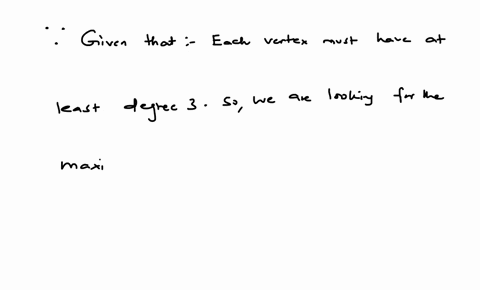 ∵ Given that :- Each vertex must have at
least degree 3. So, we are looking for the
maxi